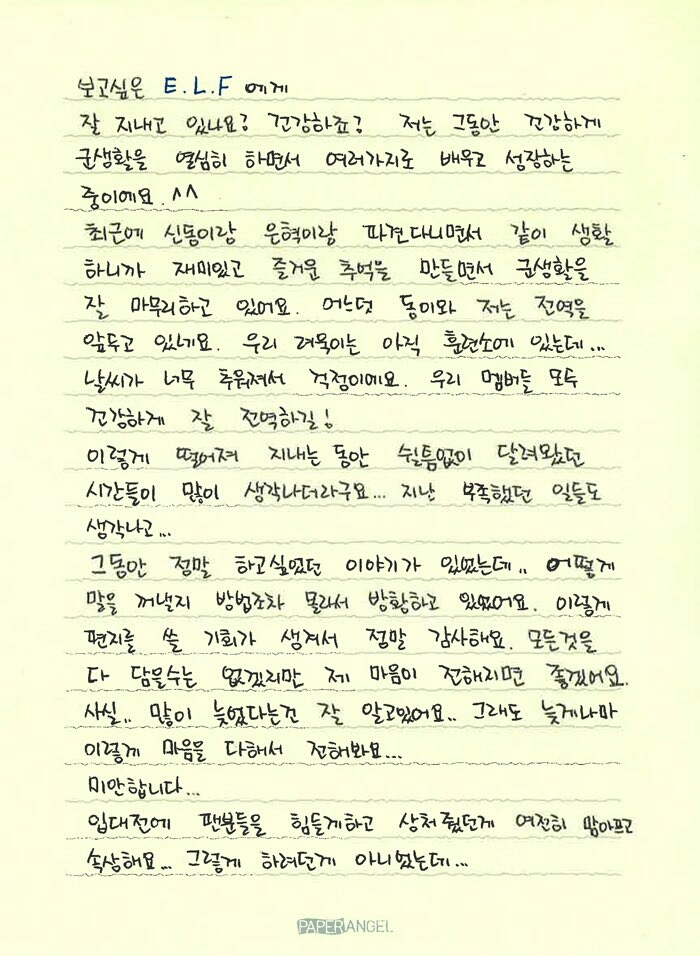 보고싶은 E.L.F 에게
잘 지내고 있나요? 건강하죠? 저는 그동안 건강하게
군생활을 열심히 하면서 여러가지로 배우고 성장하는
중이에요. ^^
최근에 신동이랑 은혁이랑 파견다니면서 같이 생활
하니까 재미있고 즐거운 추억을 만들면서 군생활을
잘 마무리하고 있어요. 어느덧 동이와 저는 전역을
앞두고 있네요. 우리 려욱이는 아직 훈련소에 있는데...
날씨가 너무 추워져서 걱정이에요. 우리 멤버들 모두
건강하게 잘 전역하길!
이렇게 떨어져 지내는 동안 쉴틈없이 달려왔던
시간들이 많이 생각나더라구요... 지난 부족했던 일들도
생각나고...
그동안 정말 하고싶었던 이야기가 있었는데.. 어떻게
말을 꺼낼지 방법조차 몰라서 방황하고 있었어요. 이렇게
편지를 쓸 기회가 생겨서 정말 감사해요. 모든것을
다 담을수는 없겠지만 제 마음이 전해지면 좋겠어요.
사실.. 많이 늦었다는건 잘 알고있어요.. 그래도 늦게나마
이렇게 마음을 다해서 전해봐요...
미안합니다...
입대전에 팬분들을 힘들게하고 상처줬던게 여전히 맘아프고
속상해요... 그렇게 하려던게 아니었는데...
PAPERANGEL